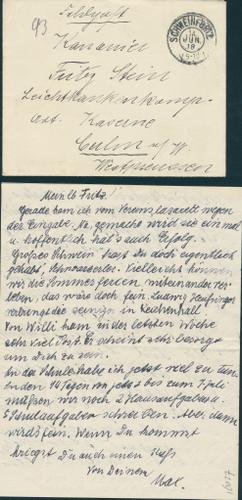 Feldpost
93
SCHWEINFURT 2
14
JUN.
18
Kanonier
Fritz Stein
Leichtkrankenkomp.
Art. Kaserne
Culm a/W.
Westpreussen
Mein lb. Fritz!
Gerade kam ich vom Vereinslazarett wegen
der Eingabe. Na, gemacht wird sie einmal
u. hoffentlich hat's auch Erfolg.
Großes Schwein hast Du doch eigentlich
gehabt, Schnasserler. Vielleicht können
wir die Sommerferien miteinander ver-
leben, das wäre doch fein. Ludwig
verbringt die seinigen in
Von Willi kam in der letzten Woche
sehr viel Post. Er scheint sehr besorgt
um Dich zu sein.
In der Schule habe ich jetzt viel zu tun
in den 14 Tagen von jetzt bis zum 1. Juli
müßen wir noch 2 Hausaufgaben u.
5 Schulaufgaben schreiben. Aber dann
wird's fein. Wenn Du kommst
kriegst Du auch einen Kuß
von Deinem
Max.